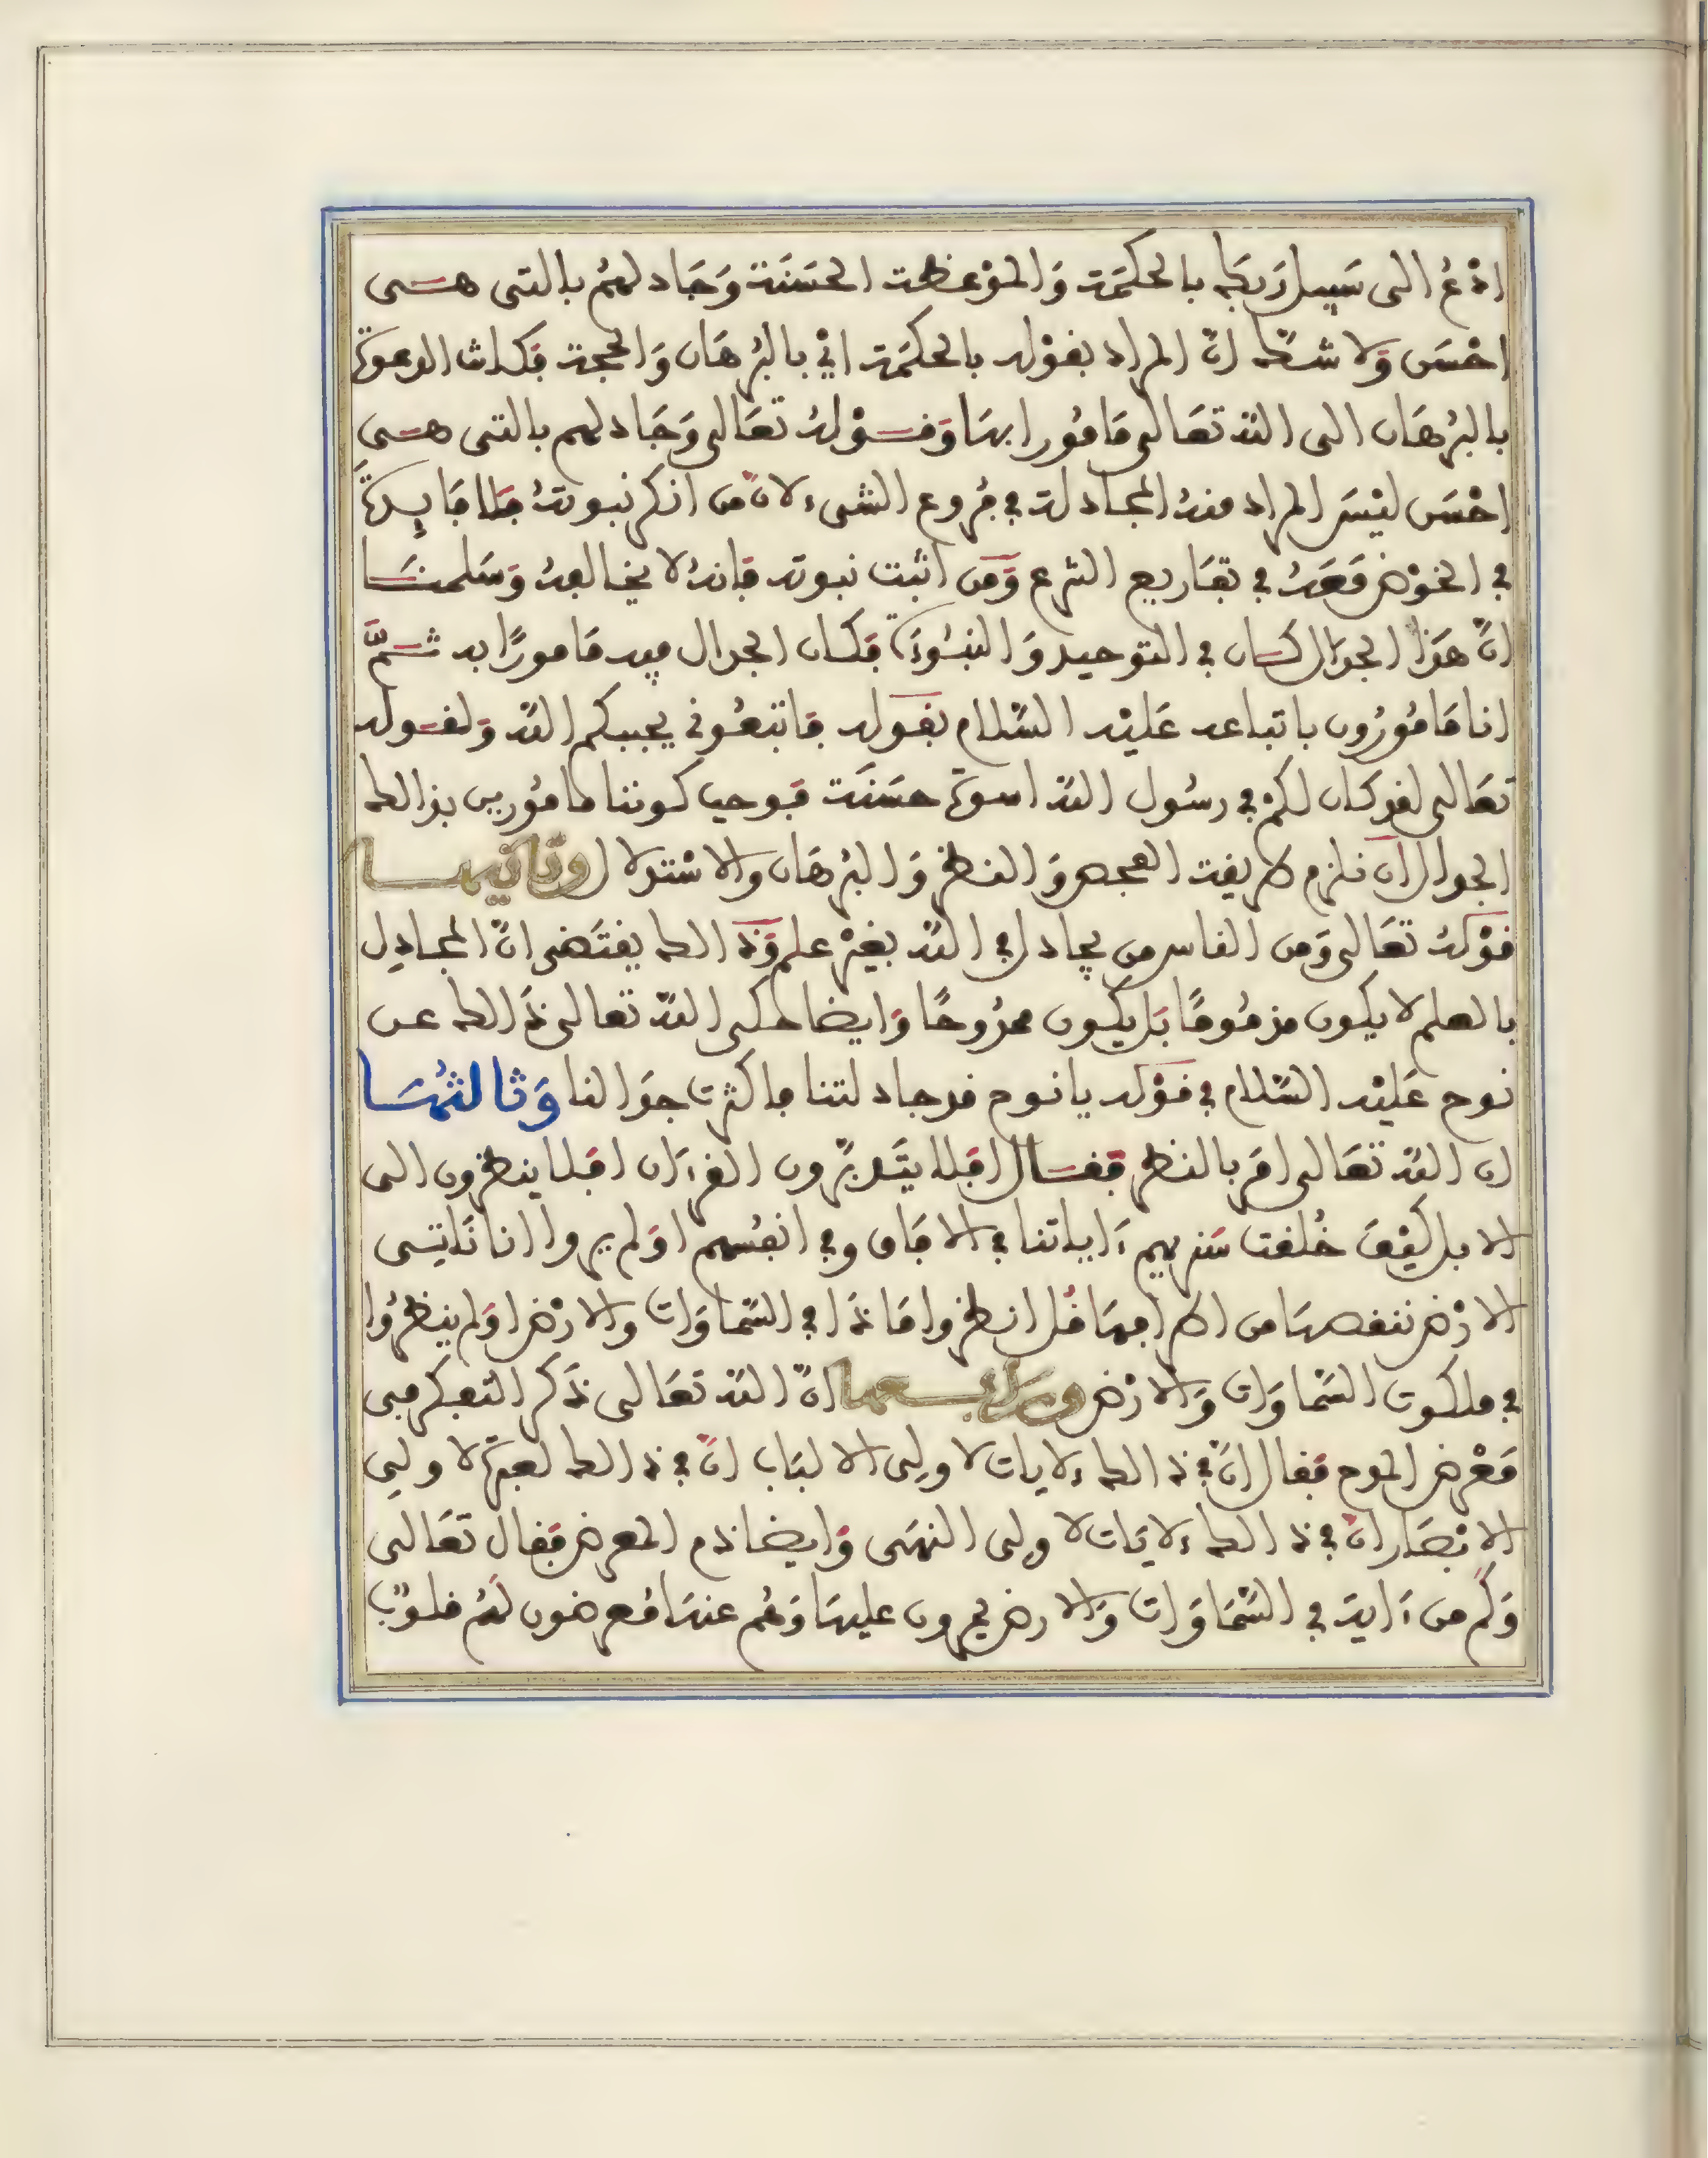 ادْعُ الى سَبِيلِ رَبِّكَ بالحكمَة وَالموْعظة الحسَنَة وَجَادلهُم بالتى هى
احْسَن وَلا شكّ انّ المراد بقوْله بالحكمَة ايْ بالبُرهَان وَالحجة فكانت الدعوَة
بالبُرهَان الى اللّه تعَالى مَامُورا بهَا وَقوْلهُ تعَالى وَجَادلهم بالتى هى
احْسَن ليْسَ المراد منهُ المجادلة في فُروع الشىء لانّ من انكر نبوتهُ فلا فَايِدَةً
في الخوْض مَعَهُ في تفَاريع الشرع وَمَن اثبت نبوته فإنهُ لا يخالفهُ وَعَلمنَا
انّ هَذا الجدال كان في التوحيد وَالنبُوءَة فكان الجدال فيه مَامورًا به ثمّ
انا مَامُورُون باتباعه عَليْه السّلام لقوله فاتبعُوني يحببكم اللّه وَلقوله
تعَالى لقد كان لكمْ في رسُول اللّه اسوة حسَنَة فوجب كوننا مامُورين بذالك
الجدال انْ نلزم طريقة الفحص وَالنظر وَالبُرهَان والاسْتدلال وثانيها
قوْلهُ تعَالى وَمن الناس من يجادل في اللّه بغيْر علم وَذَالك يقتَضى انّ المجادِل
بالعلم لا يكون مذمُومًا بَل يكون ممدُوحًا وَايضا حكى اللّه تعالى ذَالك عن
نوح عَليْه السّلام في قوْله يا نوح قد جادلتنا فاكثرت جدَالنا وَثالثهَا
ان اللّه تعَالى امَر بالنظر فقال افَلا يتَدبّرون القرءَان افَلا ينظرون الى
الابل كيْفَ خُلقت سَنريهم ءَاياتنا في الافَاق وفي انفُسهم اوَلم يروا انا نَاتى
الارْض ننقصهَا من اطرافهَا قُل انظروا مَاذَا في السّماوَات والارْض اوَلم ينظرُوا
في ملكوت السّماوَات وَالارْض ورابعها انّ اللّه تعَالى ذكر التفكر فى
مَعْرض المدح فقال انّ في ذالك ءلايات لاولى الالبَاب انّ في ذالك لعبرَة لاولي
الابْصَار انّ في ذالك ءلايَات لاولى النهَى وَايضا ذم المعرض فقال تعَالى
وَكم من ءَاية في السّمَاوَات وَالارض يمرون عليهَا وَهُم عنهَا مُعرضون لَهُم قلوبٌ